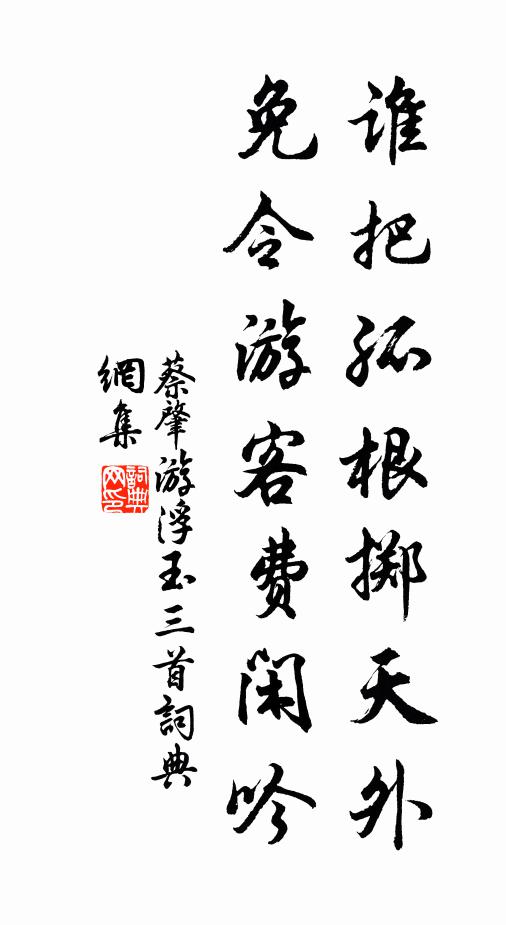 谁把孤根掷天外
免令游客费闲吟
蔡肇游浮玉三首詞典
網集
詞典
网印